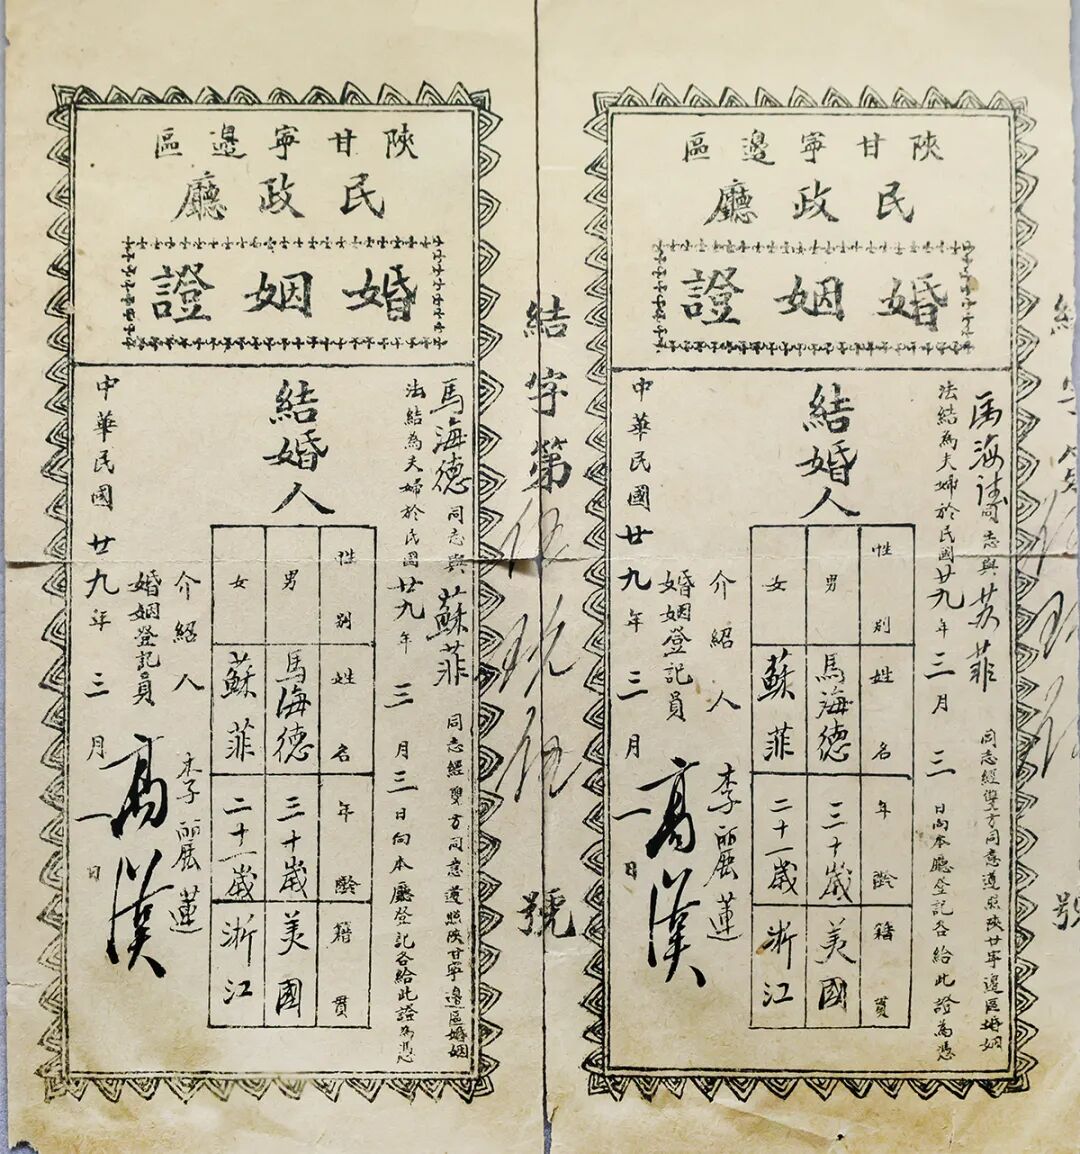 陝甘寧邊區
民政廳
婚姻證
马海德同志與苏菲同志經雙方同意遵照陝甘寧邊區婚姻
法結為夫婦於民國廿九年三月三日向本廳登記各給此證為憑
結婚人
性別 姓名 年齡 籍貫
男 馬海德 三十歲 美國
女 蘇菲 二十一歲 浙江
介紹人 李麗蓮
婚姻登記員 高漢
中華民國廿九年三月一日
結字第伍玖伍號
陝甘寧邊區
民政廳
婚姻證
馬海德同志與蘇菲同志經雙方同意遵照陝甘寧邊區婚姻
法結為夫婦於民國廿九年三月三日向本廳登記各給此證為憑
結婚人
性別 姓名 年齡 籍貫
男 馬海德 三十歲 美國
女 蘇菲 二十一歲 浙江
介紹人 李麗蓮
婚姻登記員 高漢
中華民國廿九年三月一日